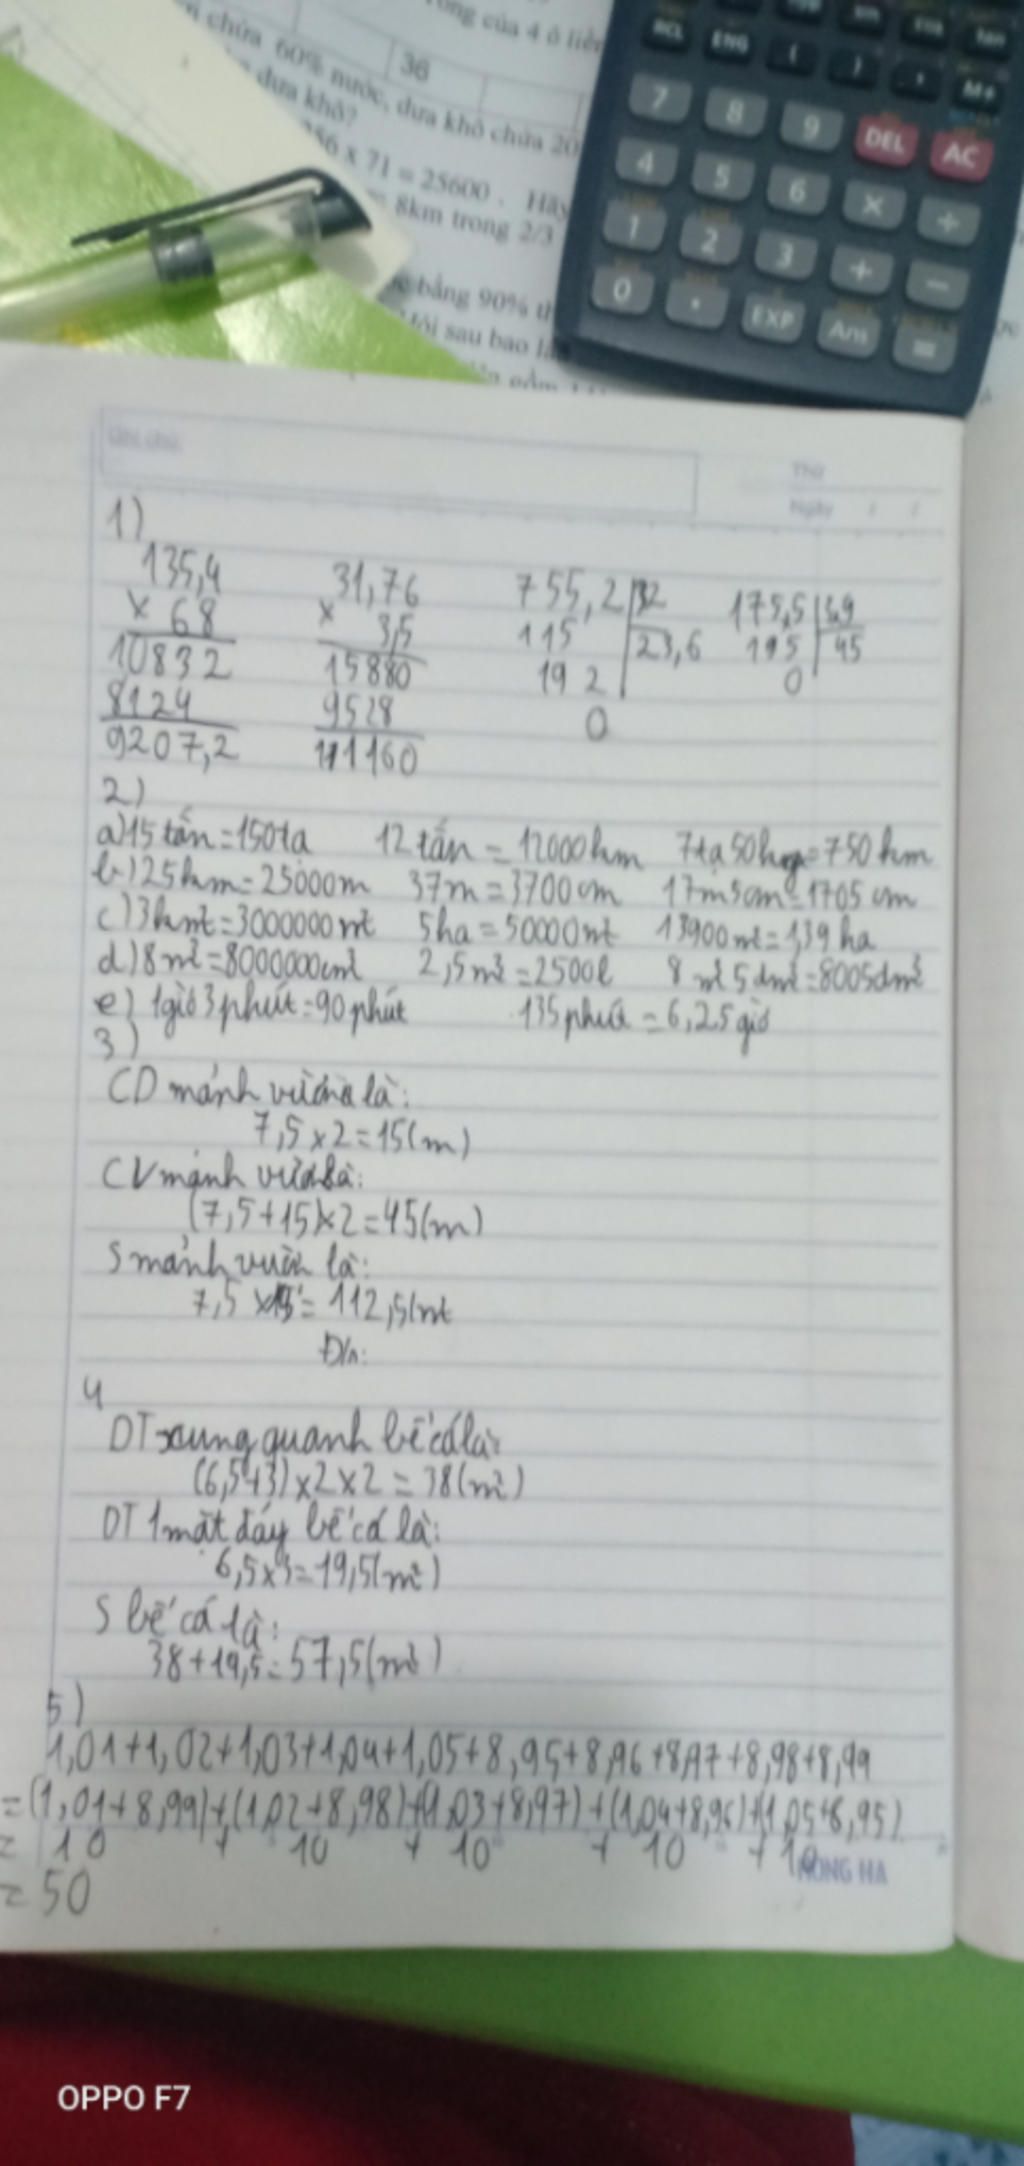 36
chứa 60% nước, dưa khô chứa 20
dưa khô?
x 71 = 25600 . Hãy
8km trong 2/3
bằng 90%
sau bao
RCL ENG ( ) , M+
7 8 9 DEL AC
4 5 6 × ÷
1 2 3 + −
0 . EXP Ans =
Thứ
Ngày / /
1)
135,4 31,76 755,2 32 175,5 3,9
x 68 x 3,5 115 23,6 195 45
10832 15880 19 2 0
8124 9528 0
9207,2 111160
2)
a) 15 tấn = 150 tạ 12 tấn = 12000 km 7 tạ 50 kg = 750 km
b) 25 km = 25000 m 37 m = 3700 cm 17 m 5 cm = 1705 cm
c) 3 km² = 3000000 m² 5 ha = 50000 m² 13900 m² = 1,39 ha
d) 8 m³ = 8000000 cm³ 2,5 m³ = 2500 l 8 m³ 5 dm³ = 8005 dm³
e) 1 giờ 3 phút = 90 phút 135 phút = 6,25 giờ
3)
CD mảnh vườn là:
7,5 x 2 = 15 (m)
CV mảnh vườn là:
(7,5 + 15) x 2 = 45 (m)
S mảnh vườn là:
7,5 x 15 = 112,5 (m²
Đ/n:
4
DT xung quanh bể cá là:
(6,5 + 3) x 2 x 2 = 38 (m²)
DT 1 mặt đáy bể cá là:
6,5 x 3 = 19,5 (m²)
S bể cá là:
38 + 19,5 = 57,5 (m²)
5)
1,01 + 1,02 + 1,03 + 1,04 + 1,05 + 8,95 + 8,96 + 8,97 + 8,98 + 8,99
= (1,01 + 8,99) + (1,02 + 8,98) + (1,03 + 8,97) + (1,04 + 8,96) + (1,05 + 8,95)
= 10 + 10 + 10 + 10 + 10
HONG HA
= 50
OPPO F7